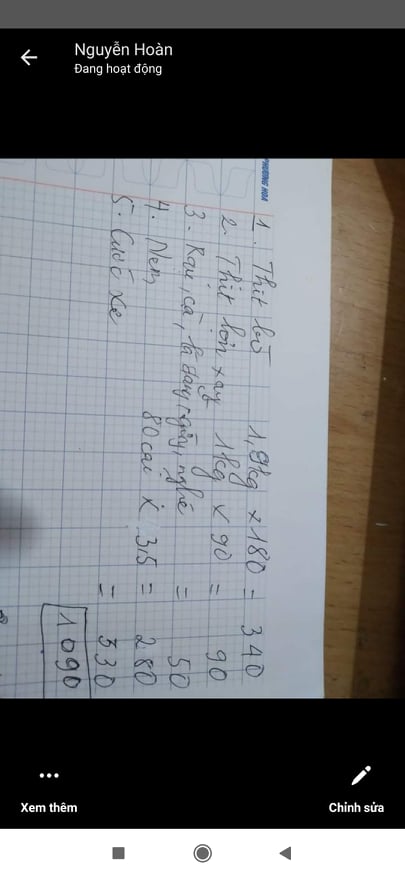 Nguyễn Hoàn
Đang hoạt động
Chỉnh sửa
Xem thêm
PHƯƠNG HOA
1. Thịt bò 1,9kg x 180 = 340
2. Thịt lợn xay 1kg x 90 = 90
3. Rau, cà, lá nghệ = 50
4. Nem 80 cái x 3,5 = 280
5. Cước xe = 330
1090